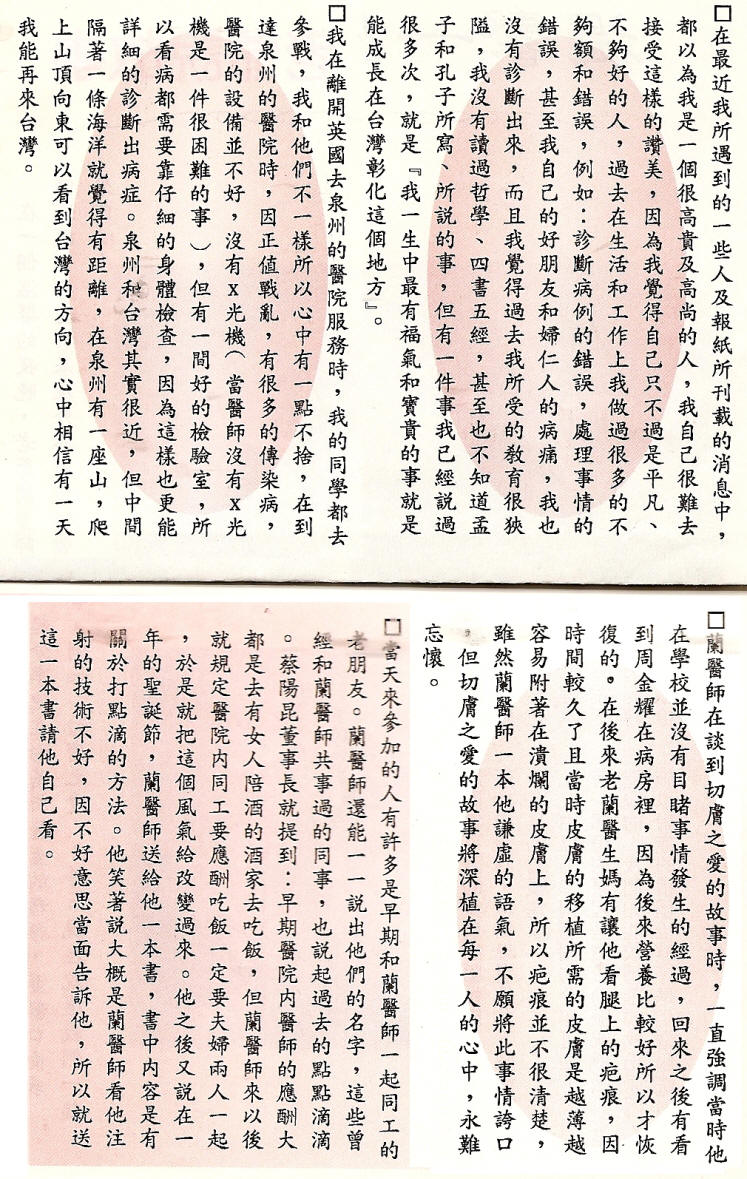 □在最近我所遇到的一些人及報紙所刊載的消息中，
都以為我是一個很高貴及高尚的人，我自己很難去
接受這樣的讚美，因為我覺得自己只不過是平凡、
不夠好的人，過去在生活和工作上我做過很多的不
夠額和錯誤，例如：診斷病例的錯誤，處理事情的
錯誤，甚至我自己的好朋友和婦仁人的病痛，我也
沒有診斷出來，而且我覺得過去我所受的教育很狹
隘，我沒有讀過哲學、四書五經，甚至也不知道孟
子和孔子所寫、所說的事，但有一件事我已經説過
很多次，就是『我一生中最有福氣和寶貴的事就是
能成長在台灣彰化這個地方』。
□我在離開英國去泉州的醫院服務時，我的同學都去
參戰，我和他們不一樣所以心中有一點不捨，在到
達泉州的醫院時，因正值戰亂，有很多的傳染病，
醫院的設備並不好，沒有X光機（當醫師沒有X光
機是一件很困難的事），但有一間好的檢驗室，所
以看病都需要靠仔細的身體檢查，因為這樣也更能
詳細的診斷出病症。泉州和台灣其實很近，但中間
隔著一條海洋就覺得有距離，在泉州有一座山，爬
上山頂向東可以看到台灣的方向，心中相信有一天
我能再來台灣。
□蘭醫師在談到切膚之愛的故事時，一直強調當時他
在學校並沒有目睹事情發生的經過，回來之後有看
到周金耀在病房裡，因為後來營養比較好所以才恢
復的。在後來老蘭醫生媽有讓他看腿上的疤痕，因
時間較久了且當時皮膚的移植所需的皮膚是越薄越
容易附著在潰爛的皮膚上，所以疤痕並不很清楚，
雖然蘭醫師一本他謙虛的語氣，不願將此事情誇口
，但切膚之愛的故事將深植在每一人的心中，永難
忘懷。
□當天來參加的人有許多是早期和蘭醫師一起同工的
老朋友。蘭醫師還能一一說出他們的名字，這些曾
經和蘭醫師共事過的同事，也說起過去的點點滴滴
。蔡陽昆董事長就提到：早期醫院内醫師的應酬大
都是去有女人陪酒的酒家去吃飯，但蘭醫師來以後
就規定醫院内同工要應酬吃飯一定要夫婦兩人一起
，於是就把這個風氣給改變過來。他之後又說在一
年的聖誕節，蘭醫師送給他一本書，書中內容是有
關於打點滴的方法。他笑著說大概是蘭醫師看他注
射的技術不好，因不好意思當面告訴他，所以就送
這一本書請他自己看。